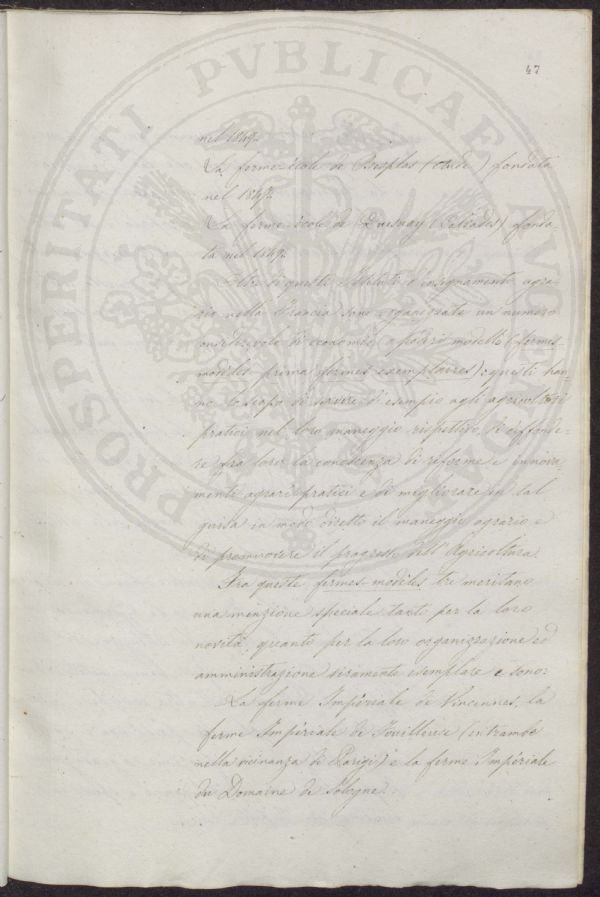 47
PROSPERITATI PVBLICAE AVGENDAE
nel 1849.
La ferme-école de Besplas (Aude) fondata
nel 1847.
La ferme-école de Quesnay (Calvados) fonda-
ta nel 1849.
Oltre di questi Istituti d'insegnamento agra-
rio nella Francia sono organizzate un numero
considerevole di economie (a poderi modello (fermes-
modèles prima fermes exemplaires): questi han-
no lo scopo di servire d'esempio agli agricoltori
pratici nel loro maneggio rispettivo, di diffonde-
re fra loro la conoscenza di riforme e innova-
menti agrari pratici e di migliorare in tal
guisa in modo diretto il maneggio agrario e
di promuovere il progresso dell'Agricoltura.
Fra queste fermes-modèles tre meritano
una menzione speciale tanto per la loro
novità, quanto per la loro organizzazione ed
amministrazione veramente esemplare e sono:
La ferme Impériale de Vincennes, la
ferme Impériale de Fouilleuse (entrambe
nella vicinanza di Parigi) e la ferme Impériale
du Domaine de Sologne.